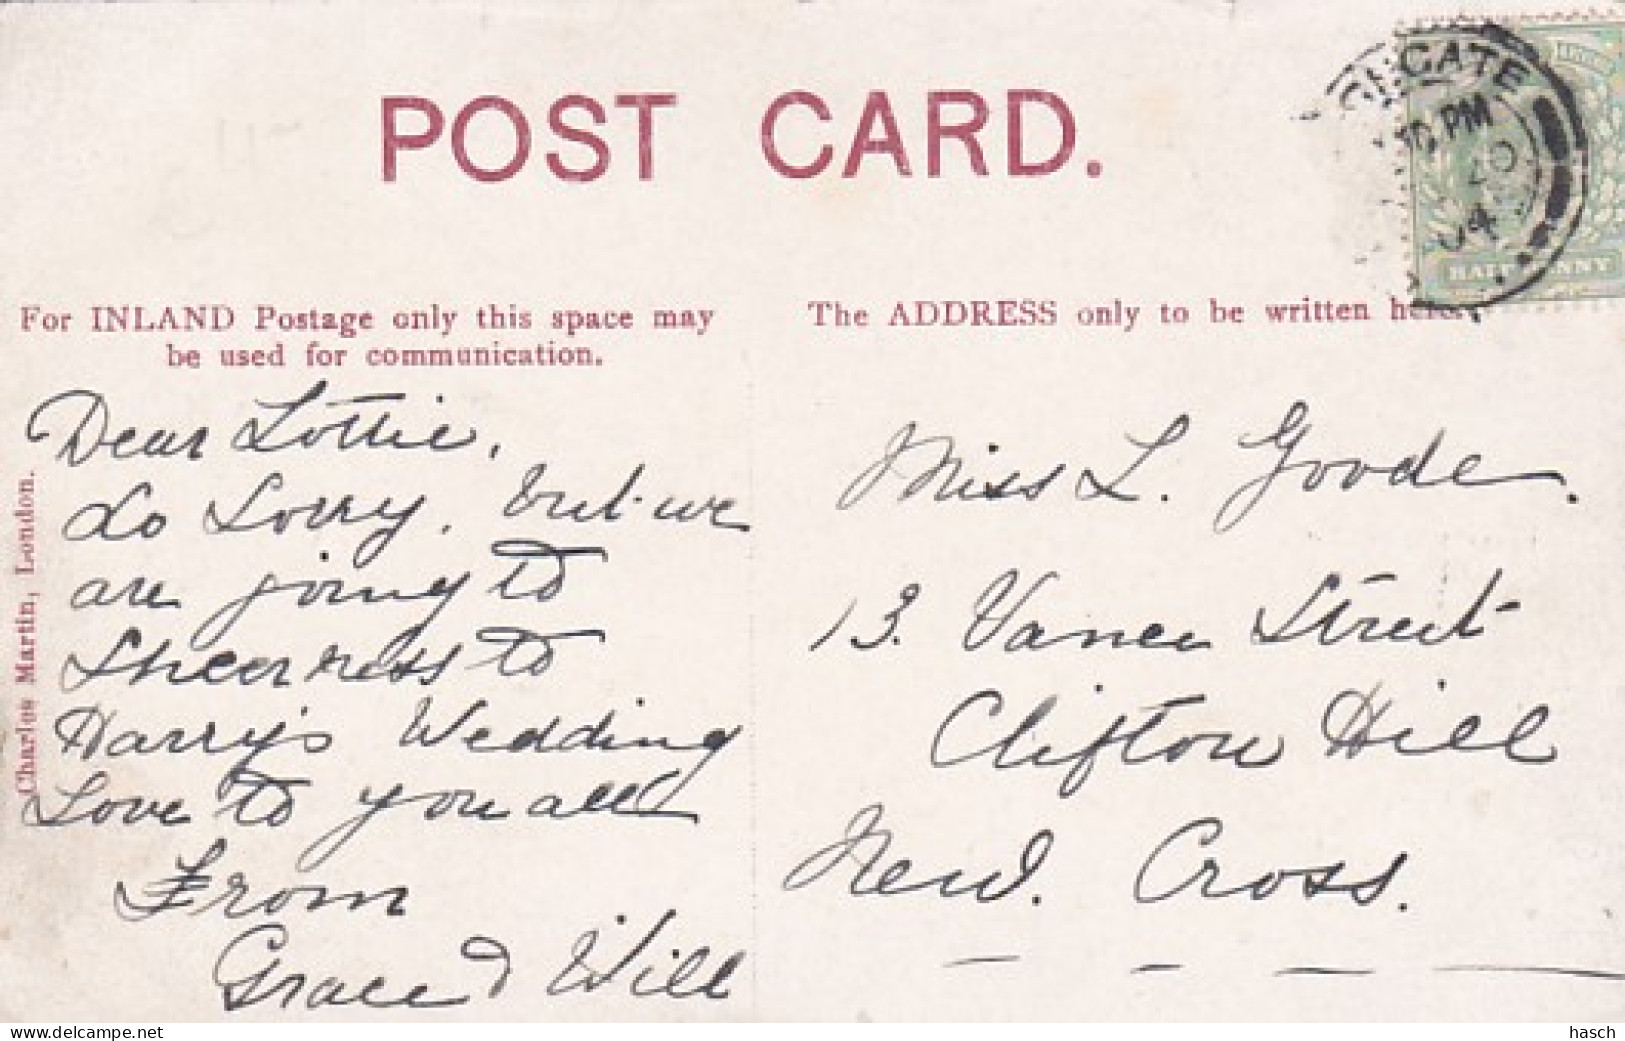 POST CARD.
30 PM
20
04
HALF PENNY
For INLAND Postage only this space may
be used for communication.
The ADDRESS only to be written here.
Charles Martin, London.
Dear Lottie,
do Sorry, but we
are going to
Sheerness to
Harry's Wedding
Love to you all
From
Grace & Will
Miss L. Goode.
13. Vance Street
Clifton Hill
New. Cross.
www.delcampe.net
hasch